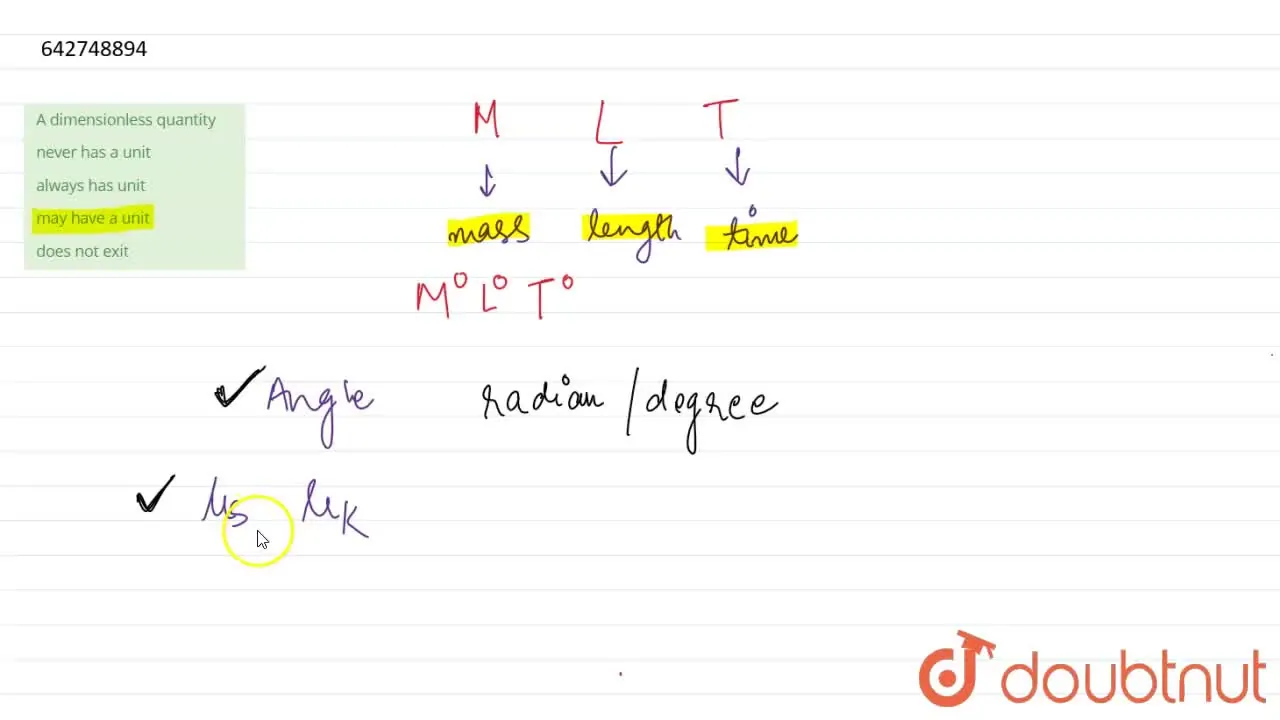 642748894
A dimensionless quantity
never has a unit
always has unit
may have a unit
does not exit
M L T
mass length time
M⁰ L⁰ T⁰
Angle radian / degree
μs μK
doubtnut